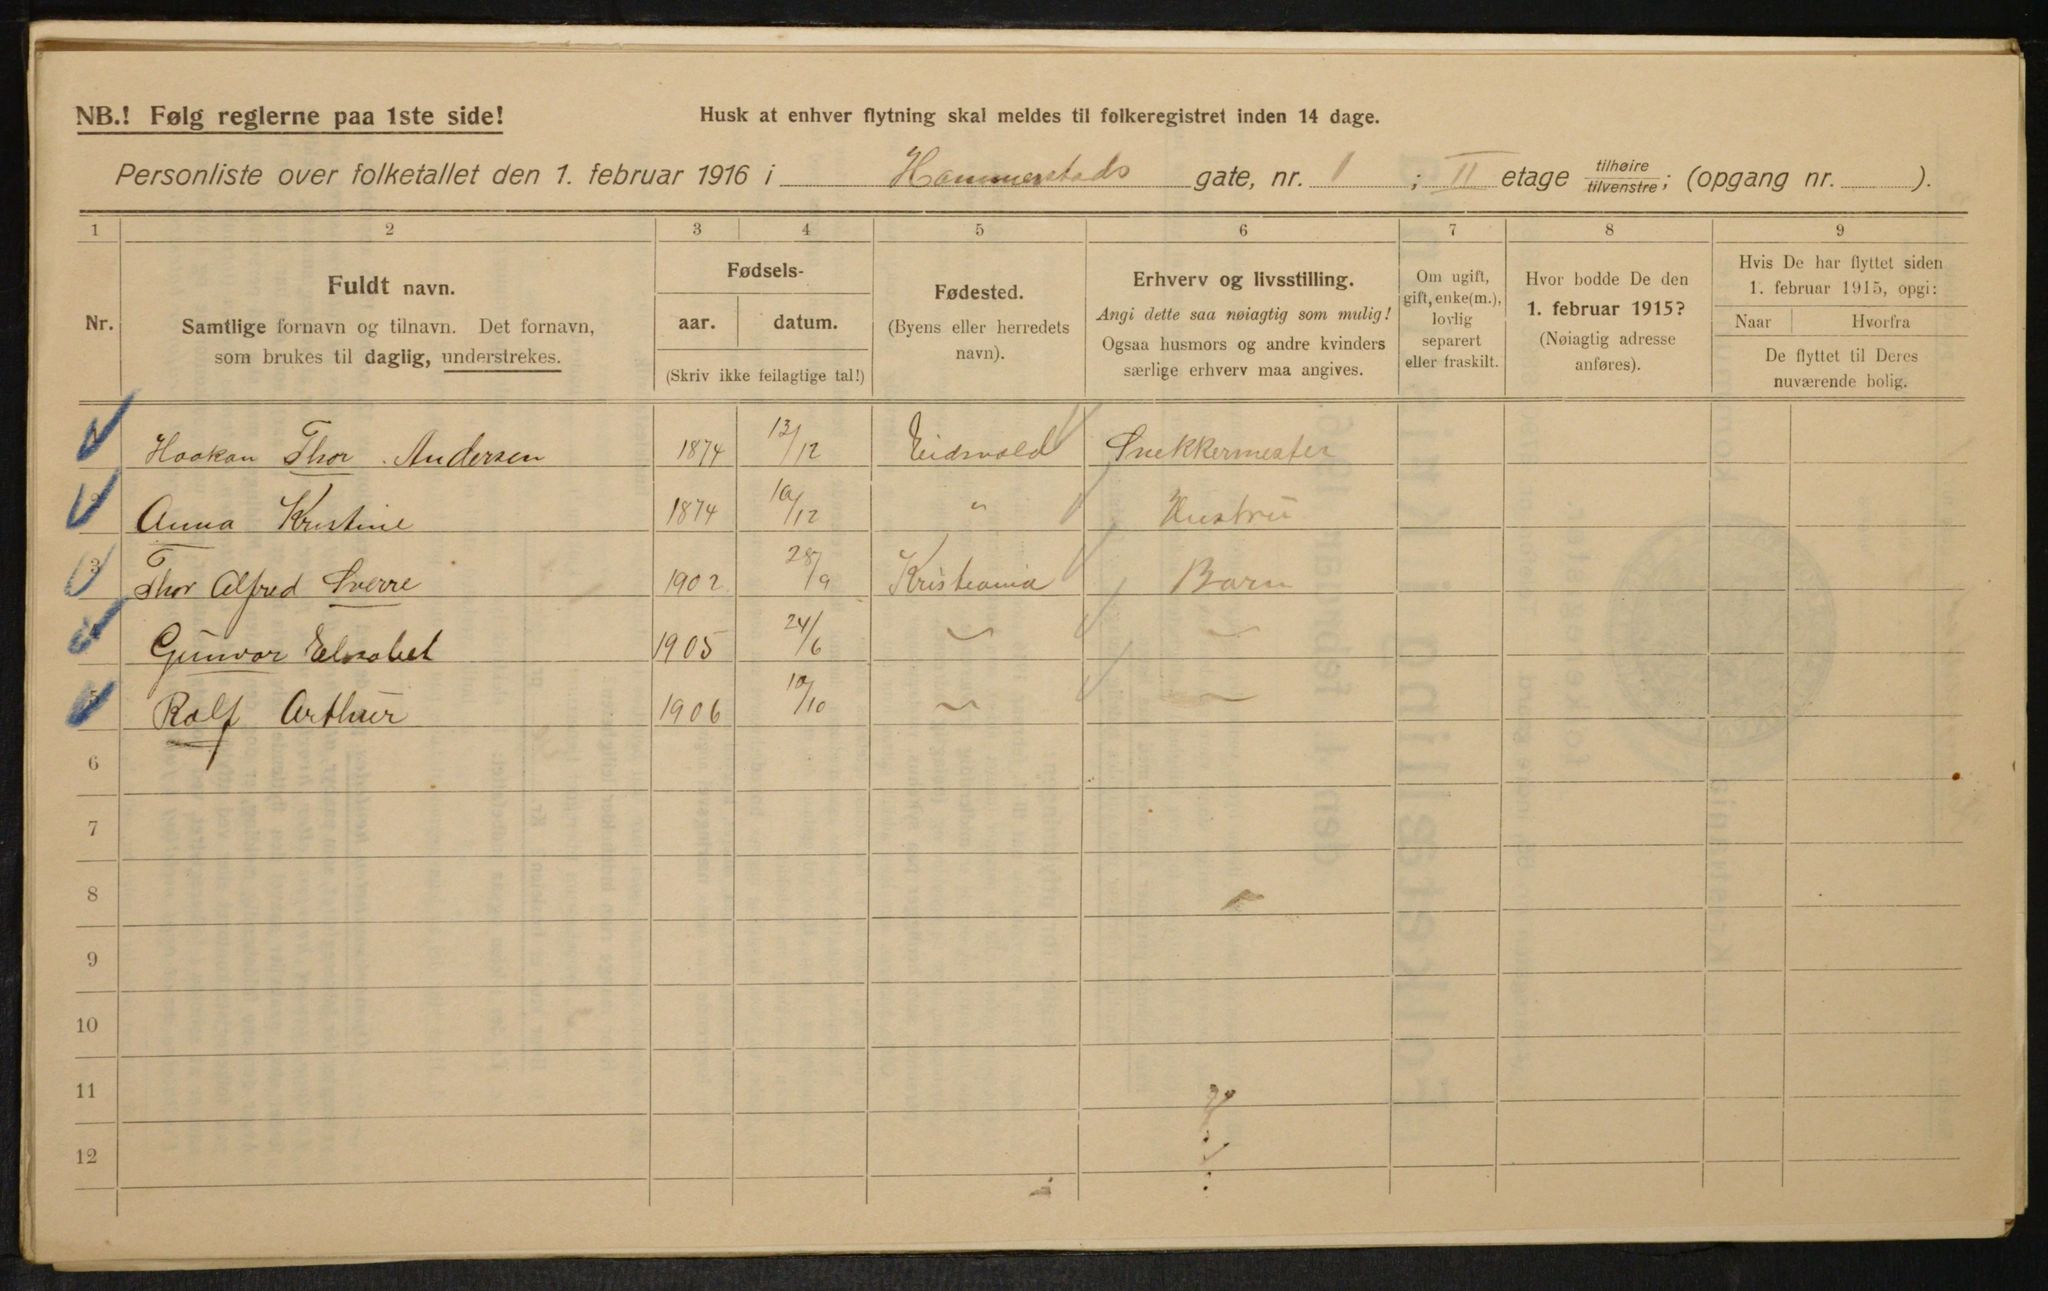 NB.! Følg reglerne paa 1ste side!
Husk at enhver flytning skal meldes til folkeregistret inden 14 dage.
Personliste over folketallet den 1. februar 1916 i Hammerstads gate, nr. 1 ; II etage tilhøire/tilvenstre; (opgang nr. ).
1 2 3 4 5 6 7 8 9
Nr.
Fuldt navn.
Samtlige fornavn og tilnavn. Det fornavn,
som brukes til daglig, understrekes.
Fødsels-
aar. datum.
(Skriv ikke feilagtige tal!)
Fødested.
(Byens eller herredets
navn).
Erhverv og livsstilling.
Angi dette saa nøiagtig som mulig!
Ogsaa husmors og andre kvinders
særlige erhverv maa angives.
Om ugift,
gift, enke(m.),
lovlig
separert
eller fraskilt.
Hvor bodde De den
1. februar 1915?
(Nøiagtig adresse
anføres).
Hvis De har flyttet siden
1. februar 1915, opgi:
Naar Hvorfra
De flyttet til Deres
nuværende bolig.
Haakan Thor Andersen 1874 13/12 Eidsvold Snekkermester
2 Anna Kristine 1874 10/12 " Hustru
3 Thor Alfred Sverre 1902 28/9 Kristiania Barn
4 Gunvor Elisabet 1905 24/6 — —
5 Ralf Arthur 1906 10/10 — —
6
7
8
9
10
11
12